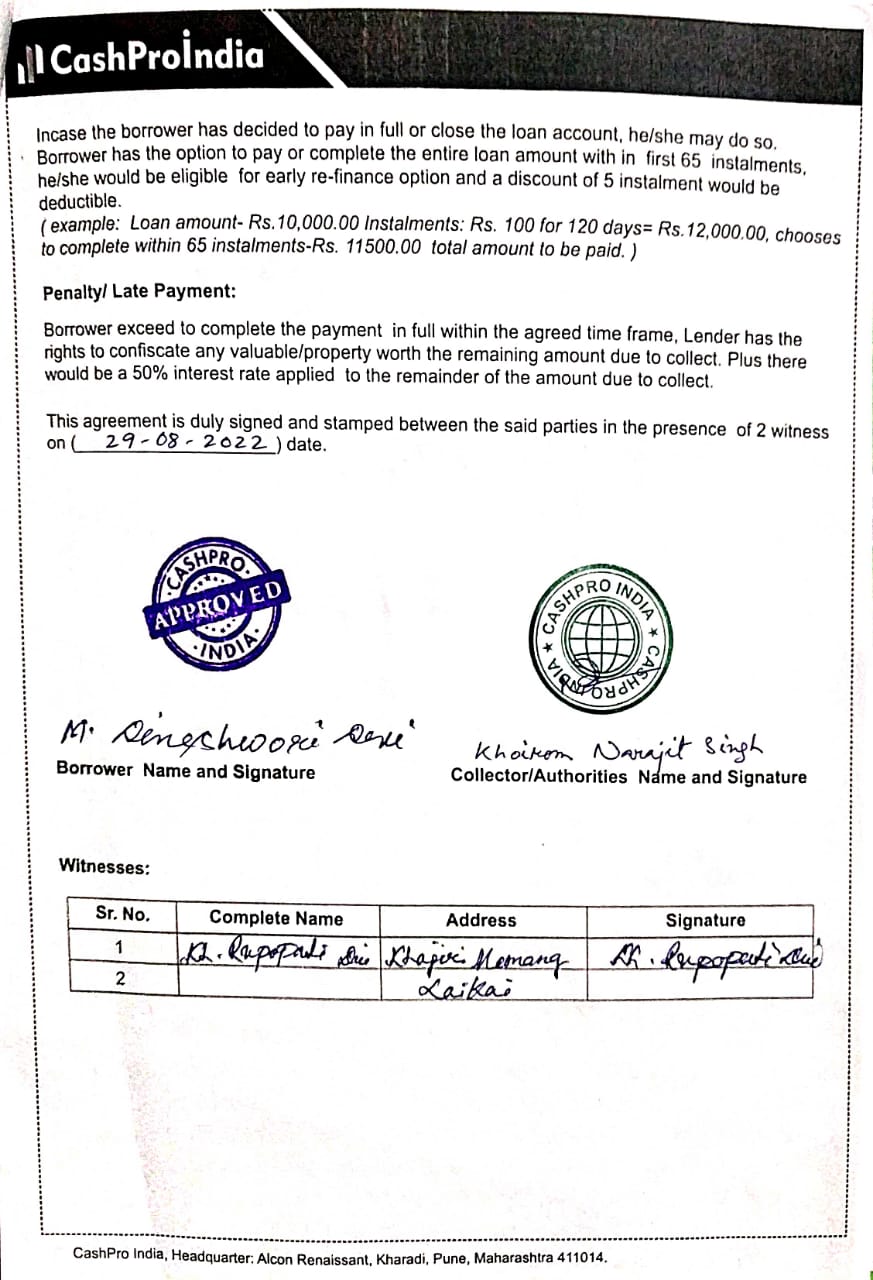 CashProIndia
Incase the borrower has decided to pay in full or close the loan account, he/she may do so.
Borrower has the option to pay or complete the entire loan amount with in first 65 instalments,
he/she would be eligible for early re-finance option and a discount of 5 instalment would be
deductible.
( example: Loan amount- Rs.10,000.00 Instalments: Rs. 100 for 120 days= Rs.12,000.00, chooses
to complete within 65 instalments-Rs. 11500.00 total amount to be paid. )
Penalty/ Late Payment:
Borrower exceed to complete the payment in full within the agreed time frame, Lender has the
rights to confiscate any valuable/property worth the remaining amount due to collect. Plus there
would be a 50% interest rate applied to the remainder of the amount due to collect.
This agreement is duly signed and stamped between the said parties in the presence of 2 witness
on ( 29-08-2022 ) date.
CASHPRO
APPROVED
INDIA
CASHPRO INDIA ★ CASHPRO INDIA ★
M.
Borrower Name and Signature
Khoirom Narajit Singh
Collector/Authorities Name and Signature
Witnesses:
Sr. No. Complete Name Address Signature
1 Kh. Memang Kh.
2 Laikai
CashPro India, Headquarter: Alcon Renaissant, Kharadi, Pune, Maharashtra 411014.